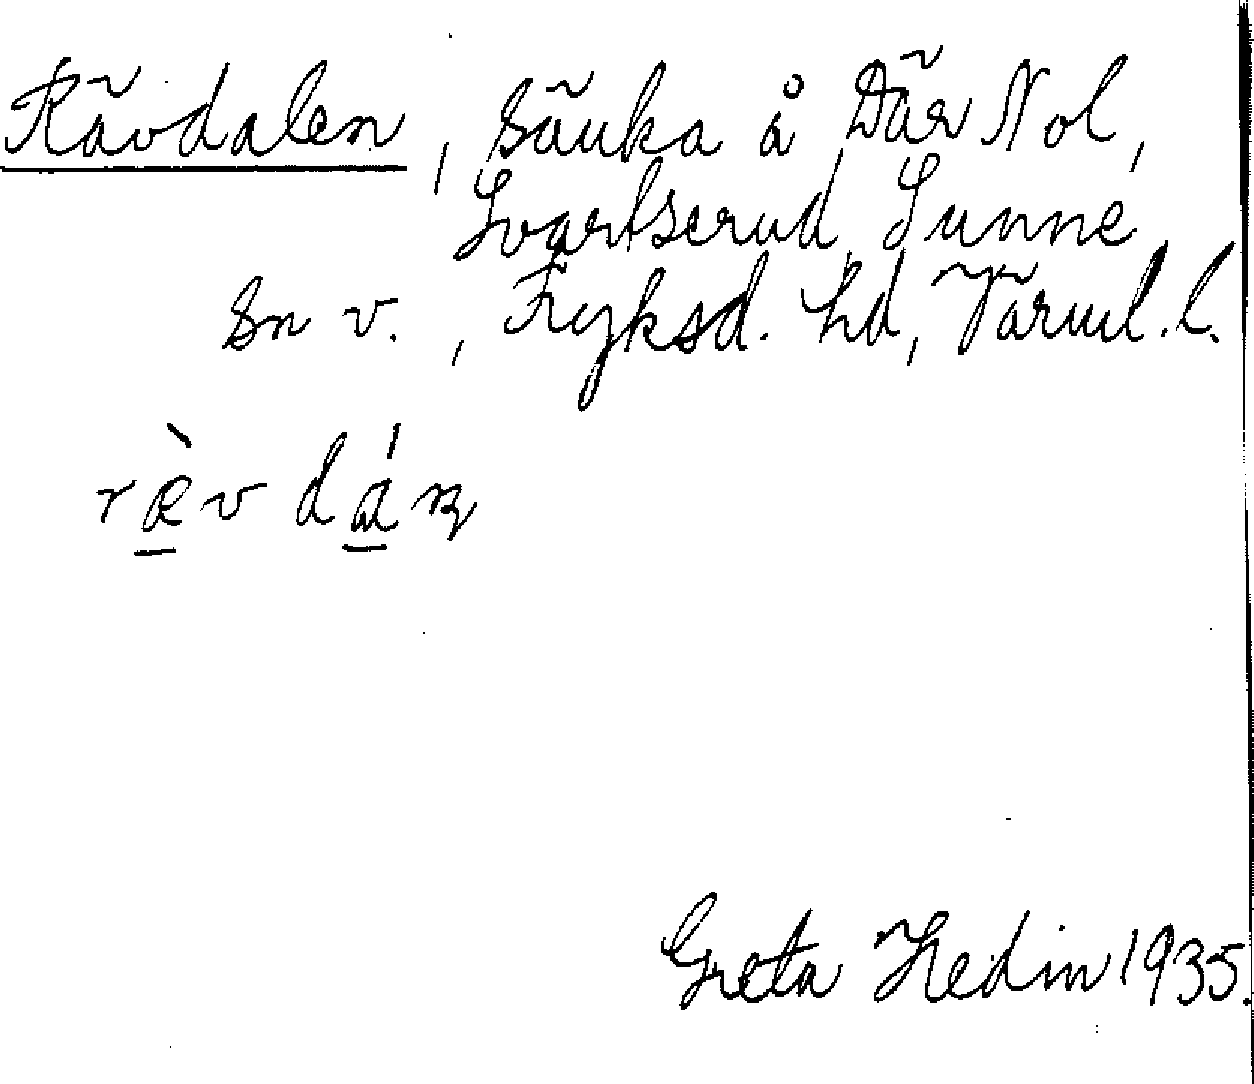 Rävdalen, sänka å Där Nol,
Svartserud, Sunne
sn v., Fryksd. hd, Värml. l.
ræ̀v dán
Greta Hedin 1935.